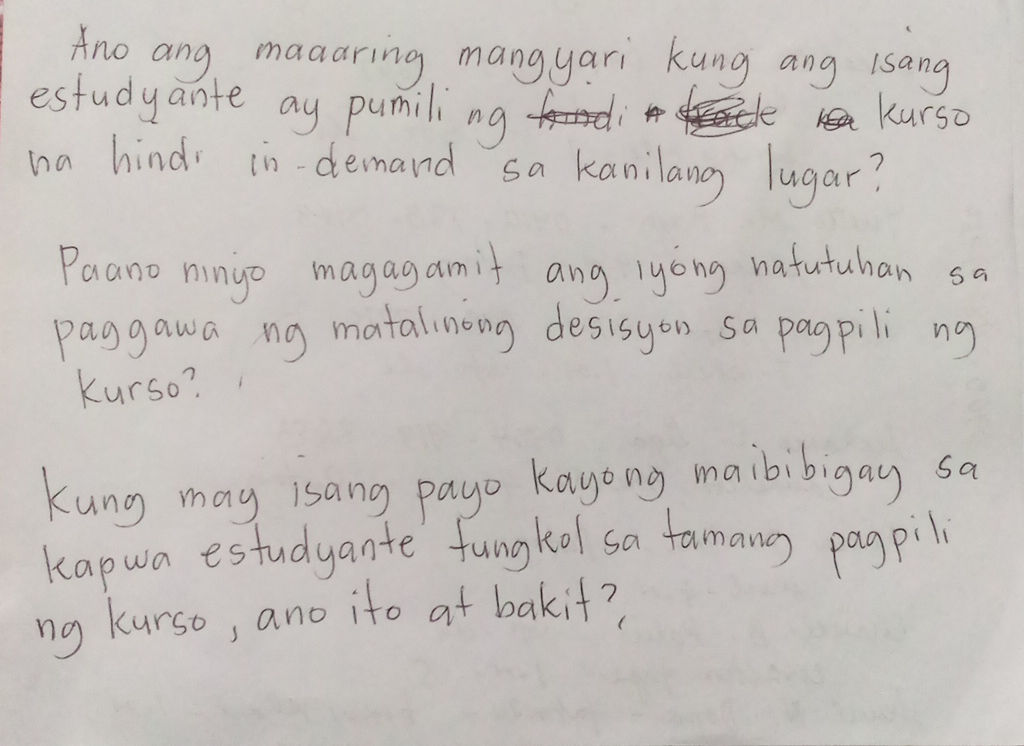 Ano ang maaaring mangyari kung ang isang
estudyante ay pumili ng kurso
na hindi in-demand sa kanilang lugar?
Paano ninyo magagamit ang iyong natutuhan sa
paggawa ng matalinong desisyon sa pagpili ng
kurso?
Kung may isang payo kayong maibibigay sa
kapwa estudyante tungkol sa tamang pagpili
ng kurso, ano ito at bakit?